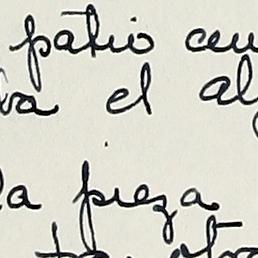 patio cen
va el al
la pieza